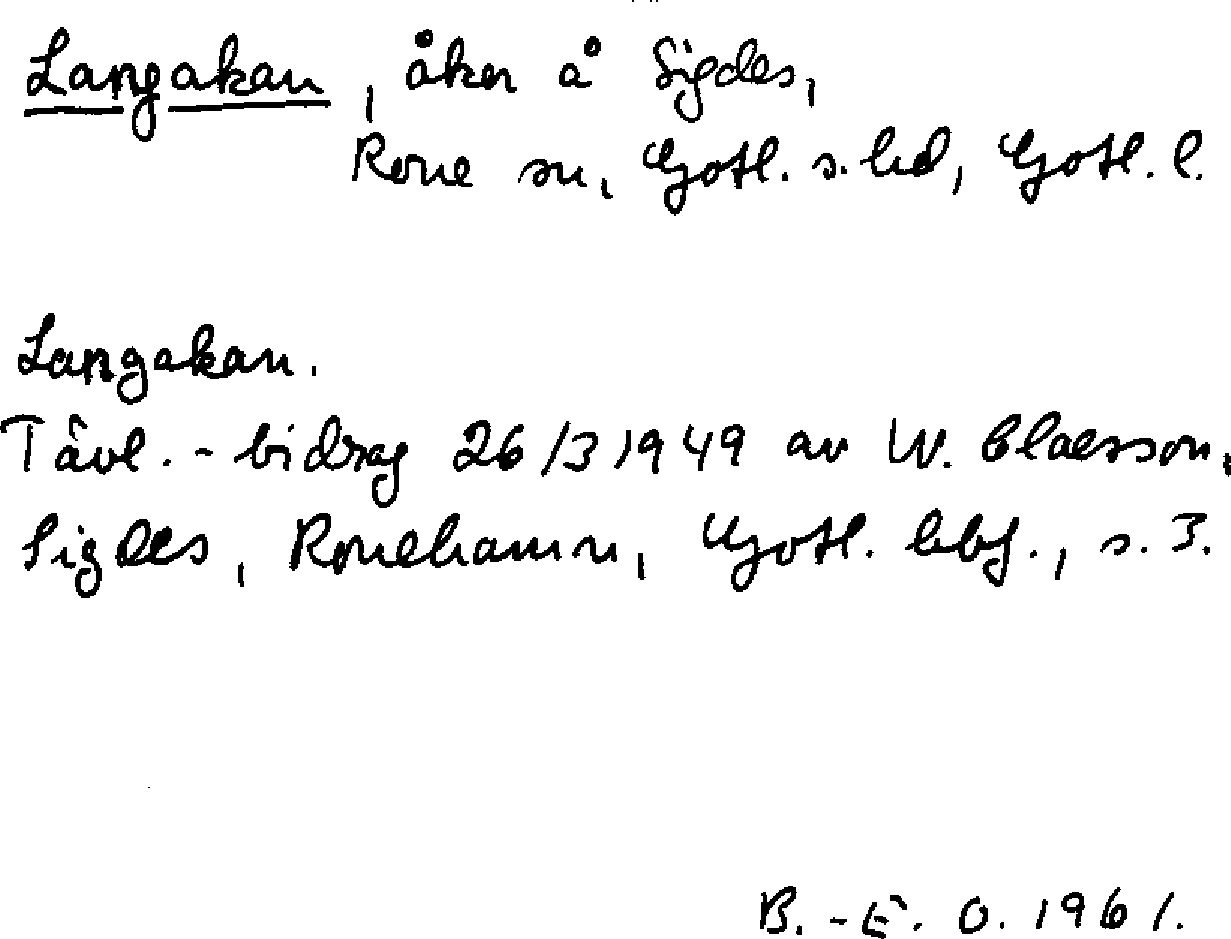 Langakan, åker å Sigdes,
Rone sn, Gotl. s. hd, Gotl. l.
Langakan.
Tävl.-bidrag 26/3 1949 av W. Claesson,
Sigdes, Ronehamn, Gotl. hbf., s. 3.
B.-E. O. 1961.